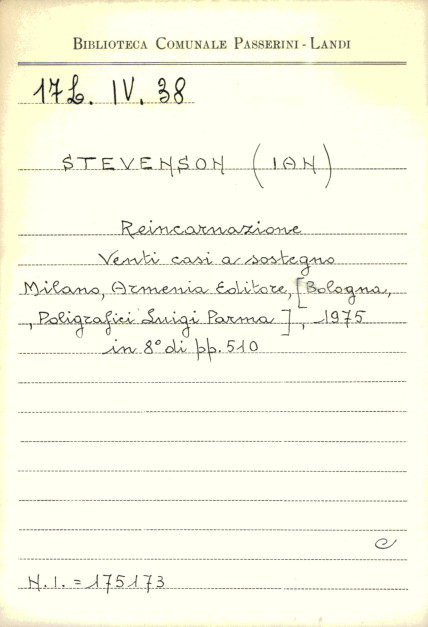 BIBLIOTECA COMUNALE PASSERINI - LANDI
17L. IV. 38
STEVENSON (IAN)
Reincarnazione
Venti casi a sostegno
Milano, Armenia Editore, [Bologna,
, Poligrafici Luigi Parma], 1975
in 8° di pp. 510
C
N.I. = 175173